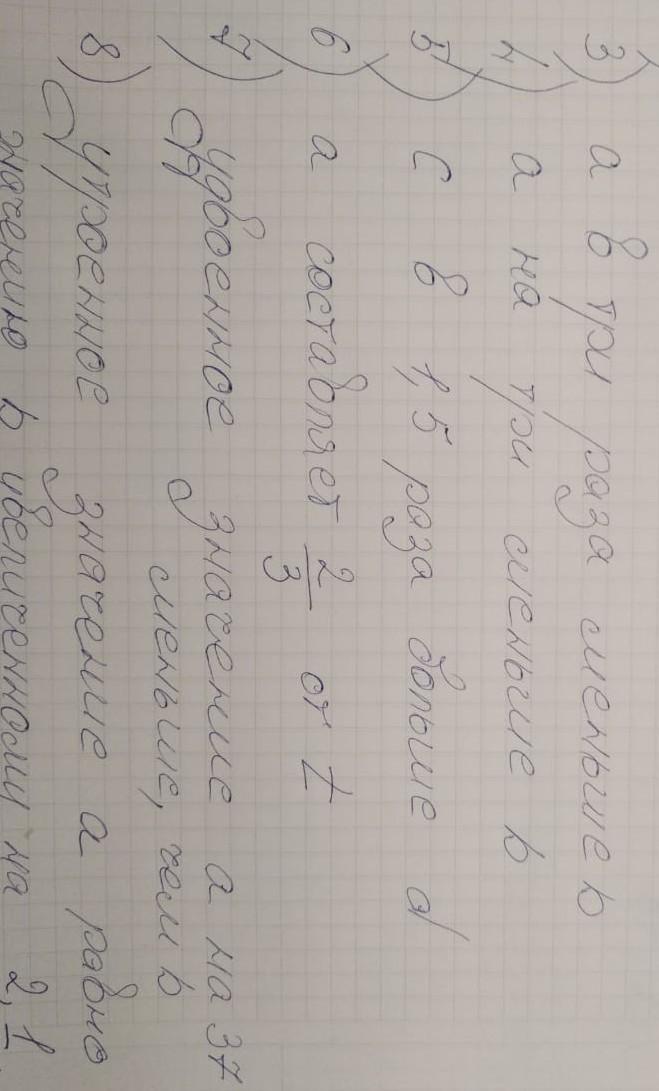 3) а в три раза меньше b
4) а на три меньше b
5) с в 1,5 раза больше d
6) а составляет 2/3 от
7) удвоенное значение а на 37
меньше, чем b
8) утроенное значение а равно
значению b увеличенному на 2,1